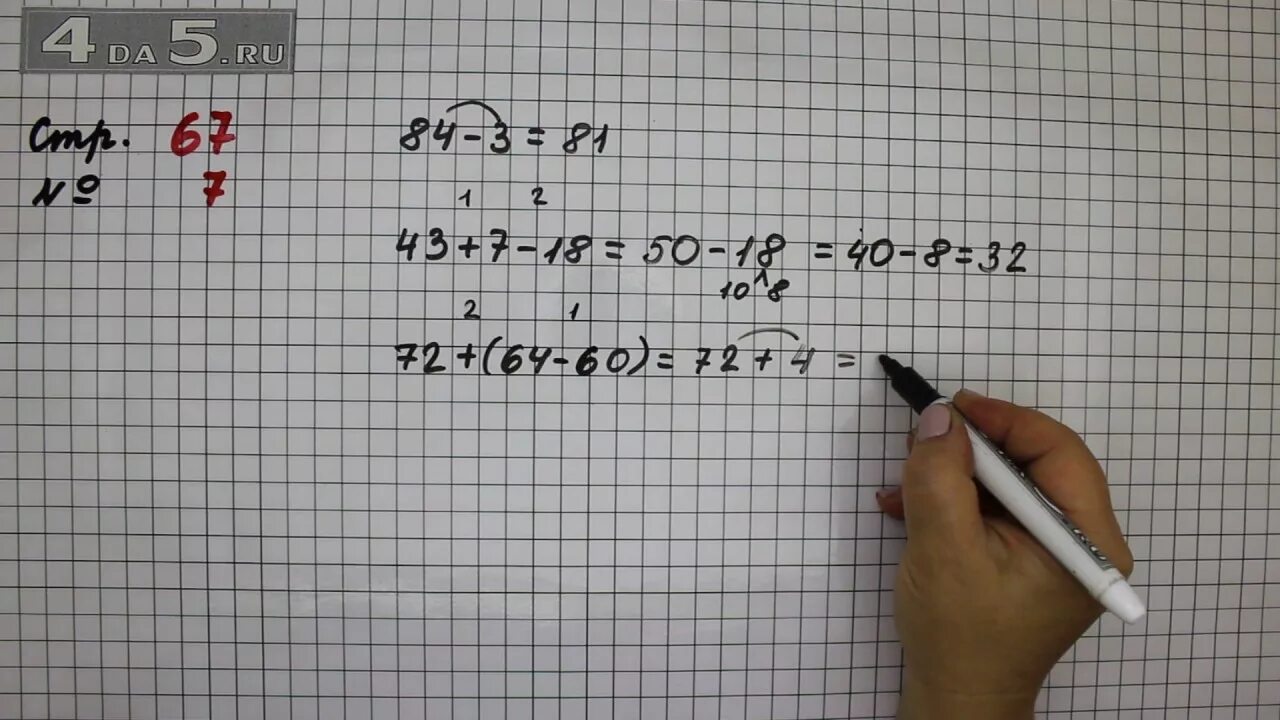 4 DA 5.RU
Стр. 67
№ 7
84 - 3 = 81
1 2
43 + 7 - 18 = 50 - 18 = 40 - 8 = 32
10 8
2 1
72 + (64 - 60) = 72 + 4 =